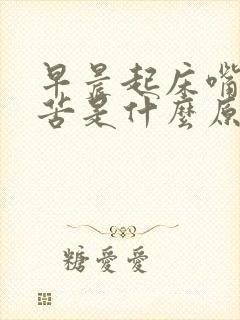 早晨起床嘴
苦是什麼原
糖愛愛